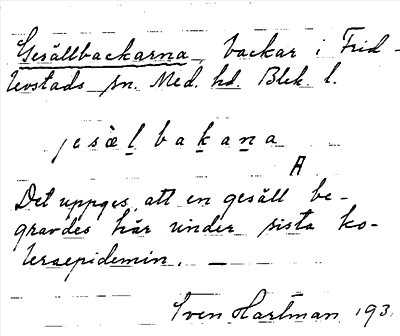 Gesällbackarna, backar i Frid-
levstads sn. Med. hd. Blek. l.
jesälbakana
A
Det uppges, att en gesäll be-
gravdes här under sista ko-
leraepidemin. —
Sven Hartman 193.